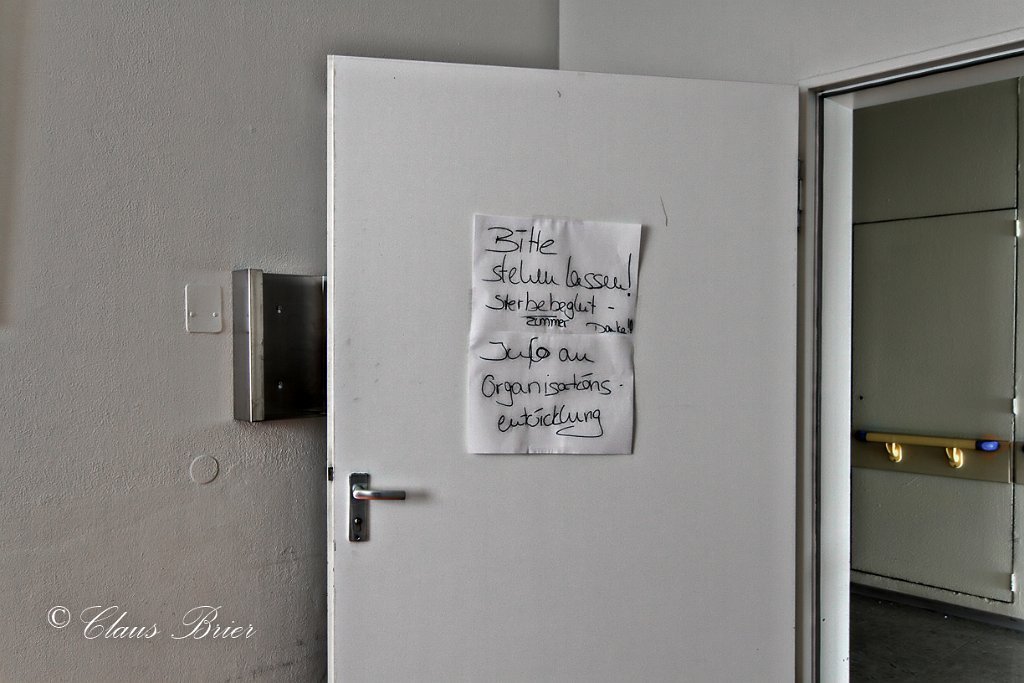 Bitte
stehen lassen!
Sterbebegleit-
zimmer Danke!!
Info an
Organisations-
entwicklung
© Claus Brier